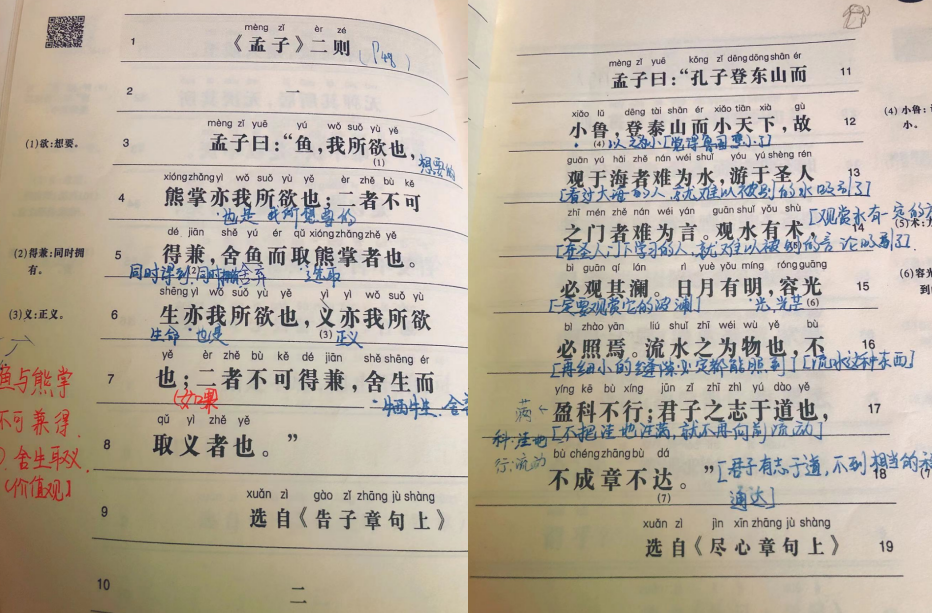 mèng zǐ èr zé
1 《孟子》二则 (P48)
2 一
mèng zǐ yuē yú wǒ suǒ yù yě
(1)欲:想要。 3 孟子曰:“鱼,我所欲也,
(1) 想要的
xióng zhǎng yì wǒ suǒ yù yě èr zhě bù kě
4 熊掌亦我所欲也;二者不可
也是 我所想要的
dé jiān shě yú ér qǔ xióng zhǎng zhě yě
(2)得兼:同时拥有。 5 得兼,舍鱼而取熊掌者也。
同时得到 (2) 舍弃 选取
shēng yì wǒ suǒ yù yě yì yì wǒ suǒ yù
(3)义:正义。 6 生亦我所欲也,义亦我所欲
生命 也是 (3) 正义
yě èr zhě bù kě dé jiān shě shēng ér
7 也;二者不可得兼,舍生而
(如果 牺牲、舍弃
qǔ yì zhě yě
8 取义者也。”
鱼与熊掌
不可兼得
舍生取义
(价值观]
xuǎn zì gào zǐ zhāng jù shàng
9 选自《告子章句上》
10 二
mèng zǐ yuē kǒng zǐ dēng dōng shān ér
孟子曰:“孔子登东山而 11
xiǎo lǔ dēng tài shān ér xiǎo tiān xià gù
小鲁,登泰山而小天下,故 12
(4) 小鲁:
小。
(4) 以为小[觉得鲁国变小了]
guān yú hǎi zhě nán wéi shuǐ yóu yú shèng rén
观于海者难为水,游于圣人 13
[看过大海的人,就难以被别的水吸引了]
zhī mén zhě nán wéi yán guān shuǐ yǒu shù
之门者难为言。观水有术, 14
[观赏水有一定的方
[在圣人门下学习的人,就难以被别的言论吸引了]
bì guān qí lán rì yuè yǒu míng róng guāng
必观其澜。日月有明,容光 15
(6)容光
[一定要观赏它的波澜] 光,光芒 (6)
bì zhào yān liú shuǐ zhī wéi wù yě bù
必照焉。流水之为物也,不 16
[再细小的缝隙必定都能照到] [流水这种东西]
yíng kē bù xíng jūn zǐ zhī zhì yú dào yě
盈科不行;君子之志于道也, 17
满
科:洼地
行:流动
[不把洼地注满,就不再向前流动]
bù chéng zhāng bù dá
不成章不达。” 18
(7)
[君子有志于道,不到相当的
通达]
xuǎn zì jìn xīn zhāng jù shàng
选自《尽心章句上》 19